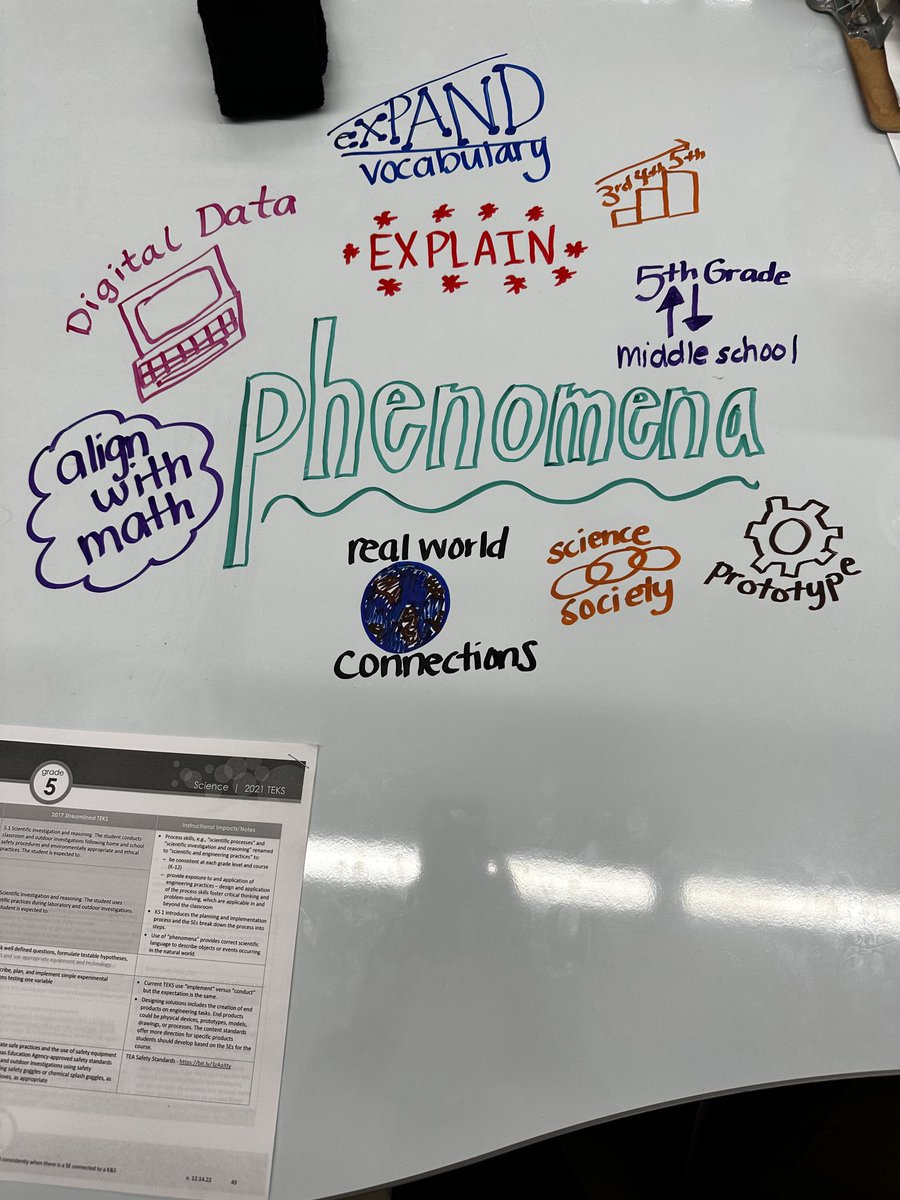 exPAND
vocabulary
3rd 4th 5th
Digital Data
EXPLAIN
5th Grade
middle school
phenomena
align
with
math
real world
connections
science
society
prototype
grade
5
Science | 2021 TEKS
2017 Streamlined TEKS
Instructional Impacts/Notes
5.1 Scientific investigation and reasoning. The student conducts
classroom and outdoor investigations following home and school
safety procedures and environmentally appropriate and ethical
practices. The student is expected to:
Scientific investigation and reasoning. The student uses
practices during laboratory and outdoor investigations.
student is expected to:
well defined questions, formulate testable hypotheses,
and use appropriate equipment and technology
plan, and implement simple experimental
testing one variable
safe practices and the use of safety equipment
Education Agency-approved safety standards
and outdoor investigations using safety
safety goggles or chemical splash goggles, as
as appropriate
• Process skills, e.g., "scientific processes" and
"scientific investigation and reasoning" renamed
to "scientific and engineering practices" to:
– be consistent at each grade level and course
(K-12)
– provide exposure to and application of
engineering practices – design and application
of the process skills foster critical thinking and
problem-solving, which are applicable in and
beyond the classroom
• KS 1 introduces the planning and implementation
process and the SEs break down the process into
steps.
• Use of "phenomena" provides correct scientific
language to describe objects or events occurring
in the natural world.
• Current TEKS use "implement" versus "conduct"
but the expectation is the same.
• Designing solutions includes the creation of end
products on engineering tasks. End products
could be physical devices, prototypes, models,
drawings, or processes. The content standards
offer more direction for specific products
students should develop based on the SEs for the
course.
TEA Safety Standards -
consistently when there is a SE connected to a K&S
v. 12.14.22
49